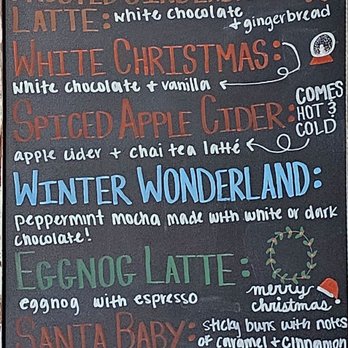 LATTE: white chocolate + gingerbread
WHITE CHRISTMAS:
white chocolate + vanilla
SPICED APPLE CIDER: COMES HOT & COLD
apple cider + chai tea latté
WINTER WONDERLAND:
peppermint mocha made with white or dark
chocolate!
EGGNOG LATTE:
eggnog with espresso
merry
christmas
SANTA BABY: sticky buns with notes
of caramel + cinnamon